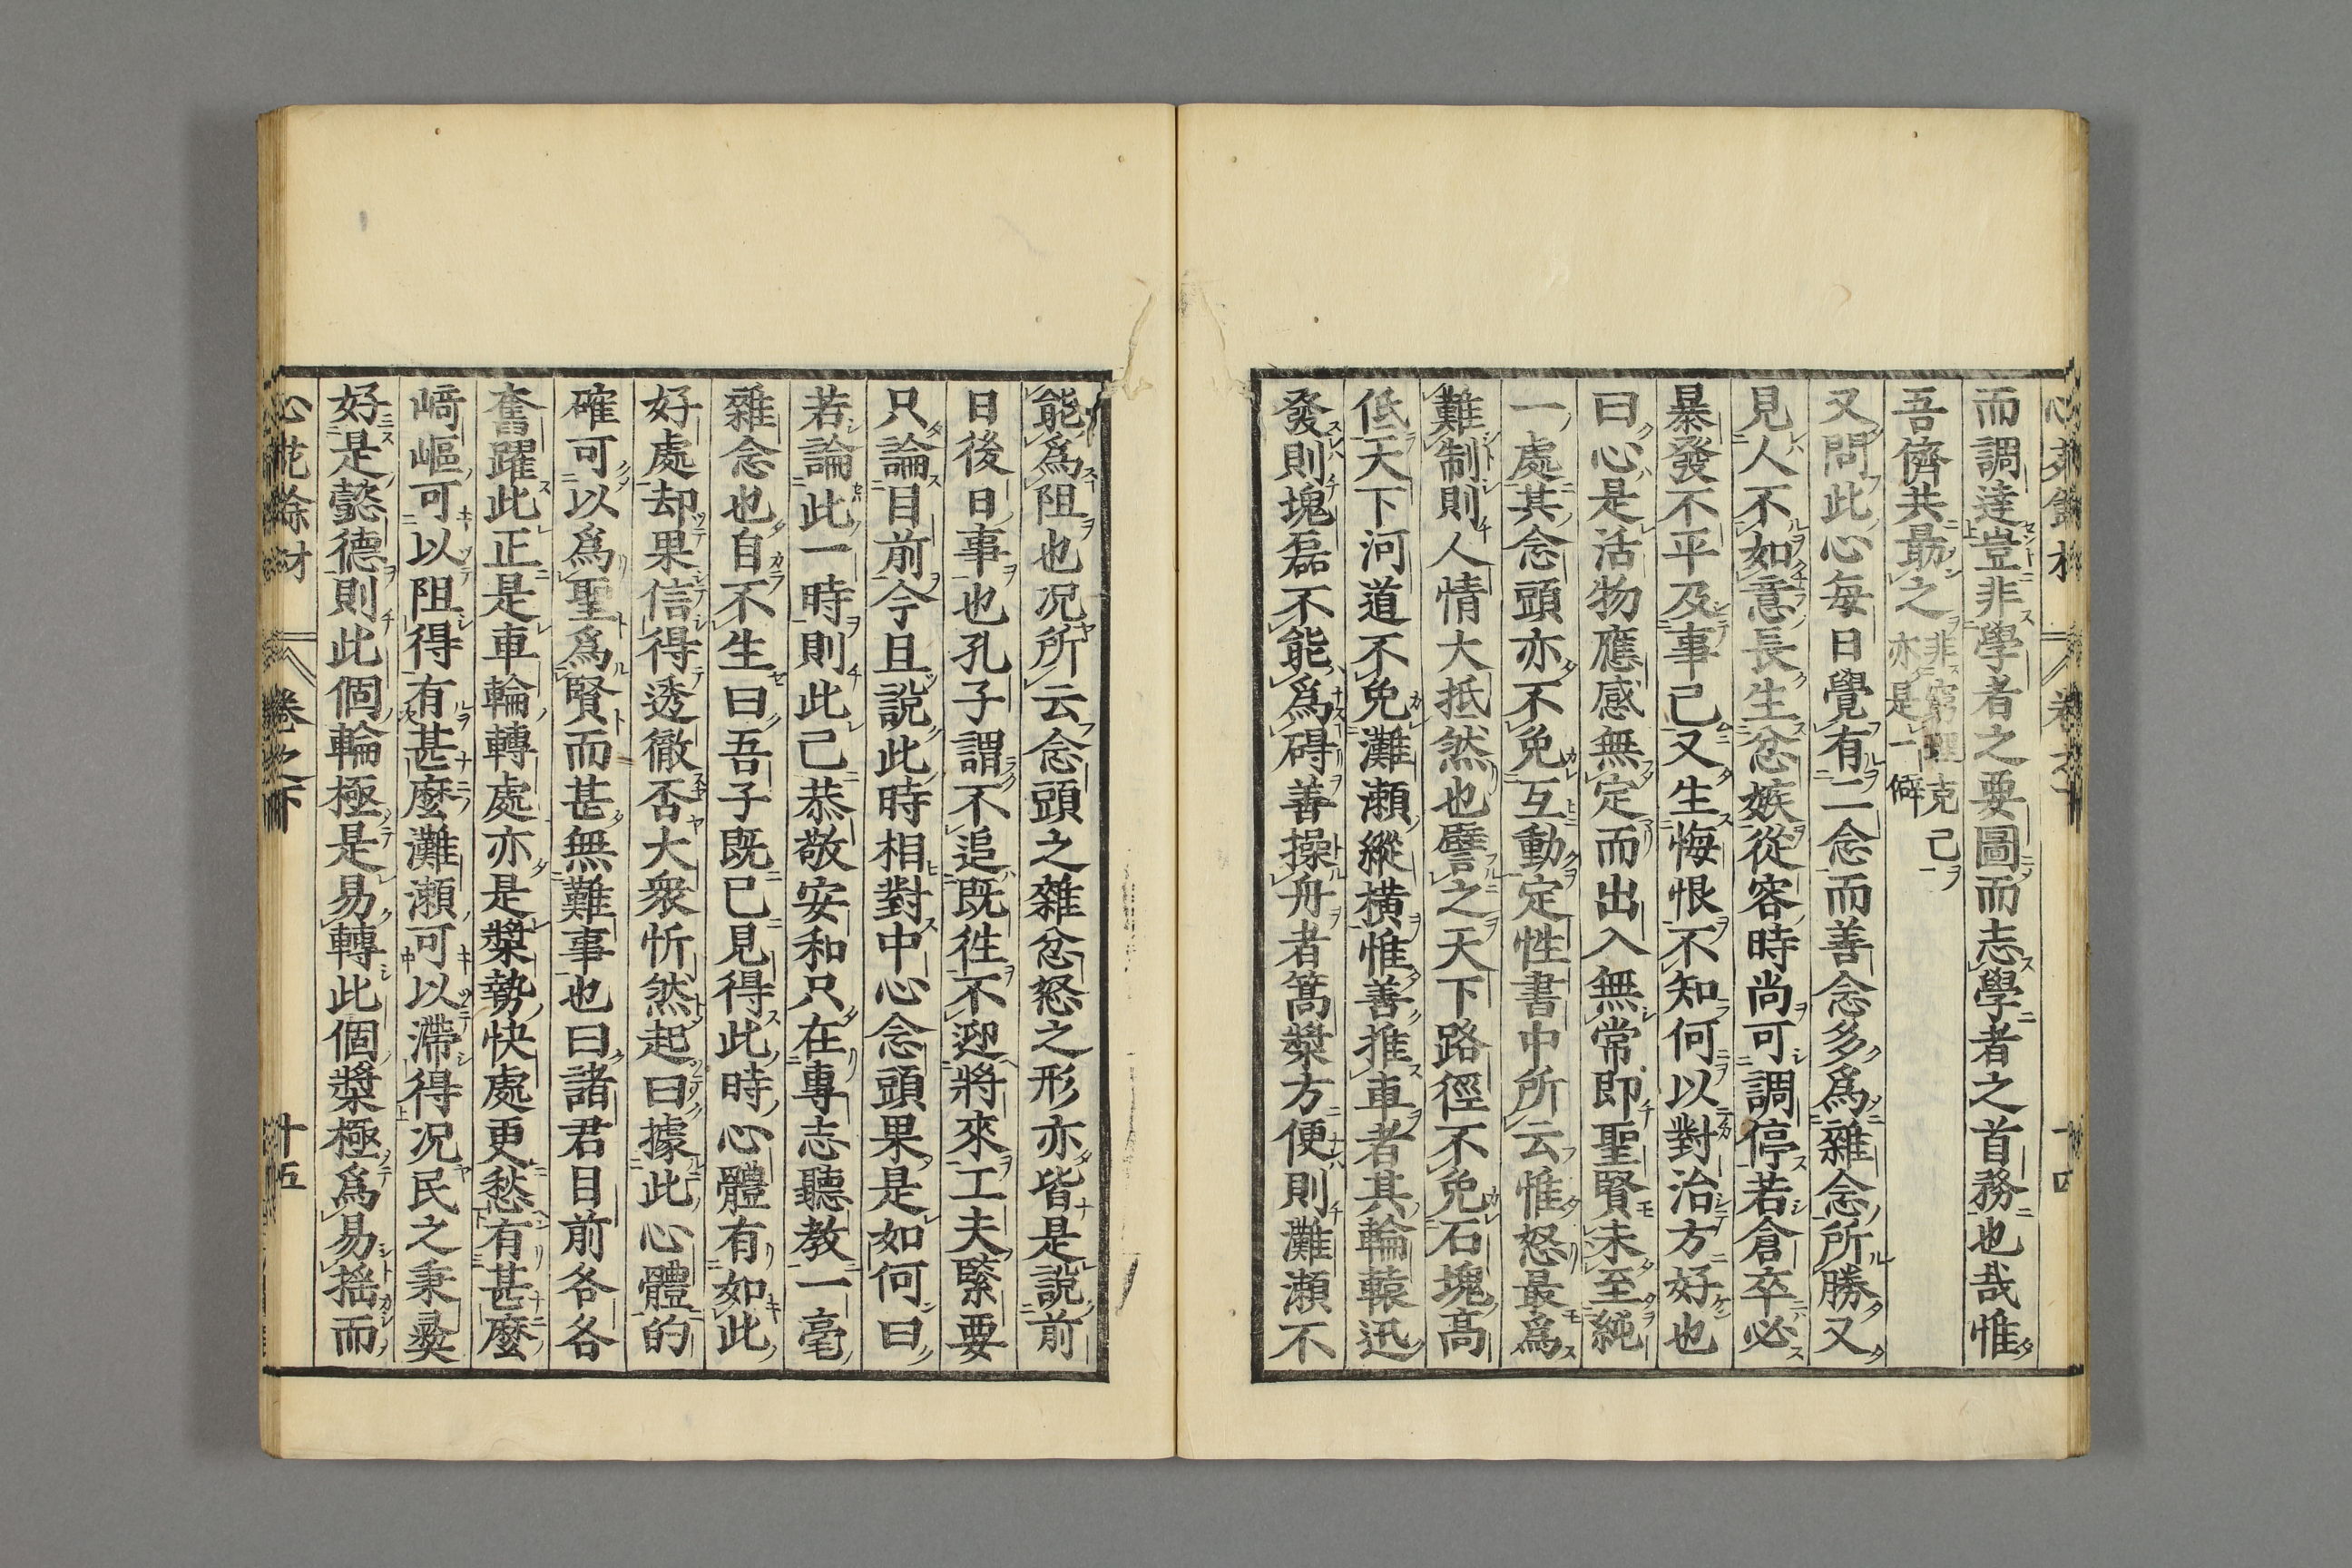 而調達豈非學者之要圖而志學者之首務也哉惟
吾儕共最之非窮理克己亦是一僻
又問此心每日覺有二念而善念多爲雜念所勝又
見人不如意長生忿嫉從容時尚可調停若倉卒必
暴發不平及事已又生悔恨不知何以對治方好也
曰心是活物應感無定而出入無常即聖賢未至純
一處其念頭亦不免互動定性書中所云惟怒最爲
難制則人情大抵然也譬之天下路徑不免石塊高
低天下河道不免灘瀬縱横惟善推車者其輪轅迅
發則塊磊不能爲碍善操舟者篙槳方便則灘瀬不
能爲阻也况所云念頭之雜忿怒之形亦皆是説前
日後日事也孔子謂不追既徃不迎將來工夫緊要
只論目前今且説此時相對中心念頭果是如何曰
若論此一時則此己恭敬安和只在專志聽教一毫
雜念也自不生曰吾子既已見得此時心體有如此
好處却果信得透徹否大衆忻然起曰據此心體的
確可以爲聖爲賢而甚無難事也曰諸君目前各各
奮躍此正是車輪轉處亦是槳勢快處更愁有甚麼
﨑嶇可以阻得有甚麼灘瀬可以滯得况民之秉彝
好是懿德則此個輪極是易轉此個槳極爲易揺而
卷之下
十五